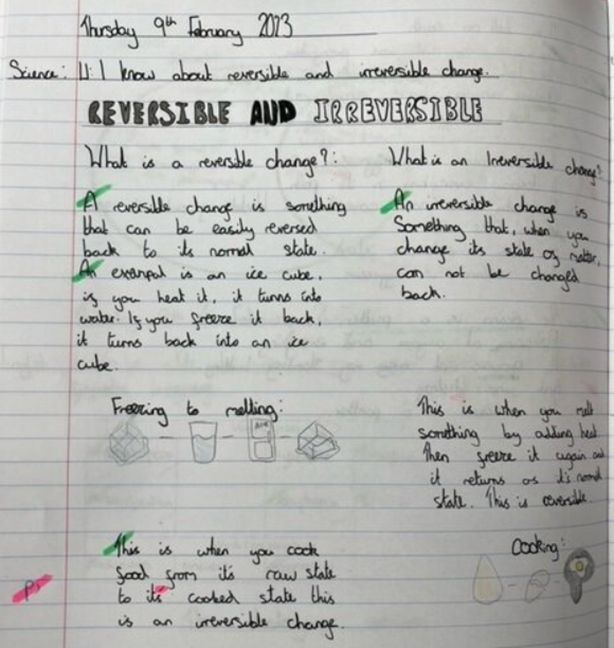 Thursday 9th February 2023
Science: LI: I know about reversible and irreversible change.
REVERSIBLE AND IRREVERSIBLE
What is a reversible change?:
A reversible change is something
that can be easily reversed
back to its normal state.
An exampal is an ice cube.
if you heat it, it turns into
water. If you freeze it back,
it turns back into an ice
cube.
What is an Irreversible change?
An irreversible change is
Something that, when you
change its state of matter,
can not be changed
back.
Freezing to melting:
This is when you melt
something by adding heat
Then freeze it again and
it returns as it's normal
state. This is reversible.
This is when you cook
food from it's raw state
to its cooked state this
is an irreversible change.
Cooking: